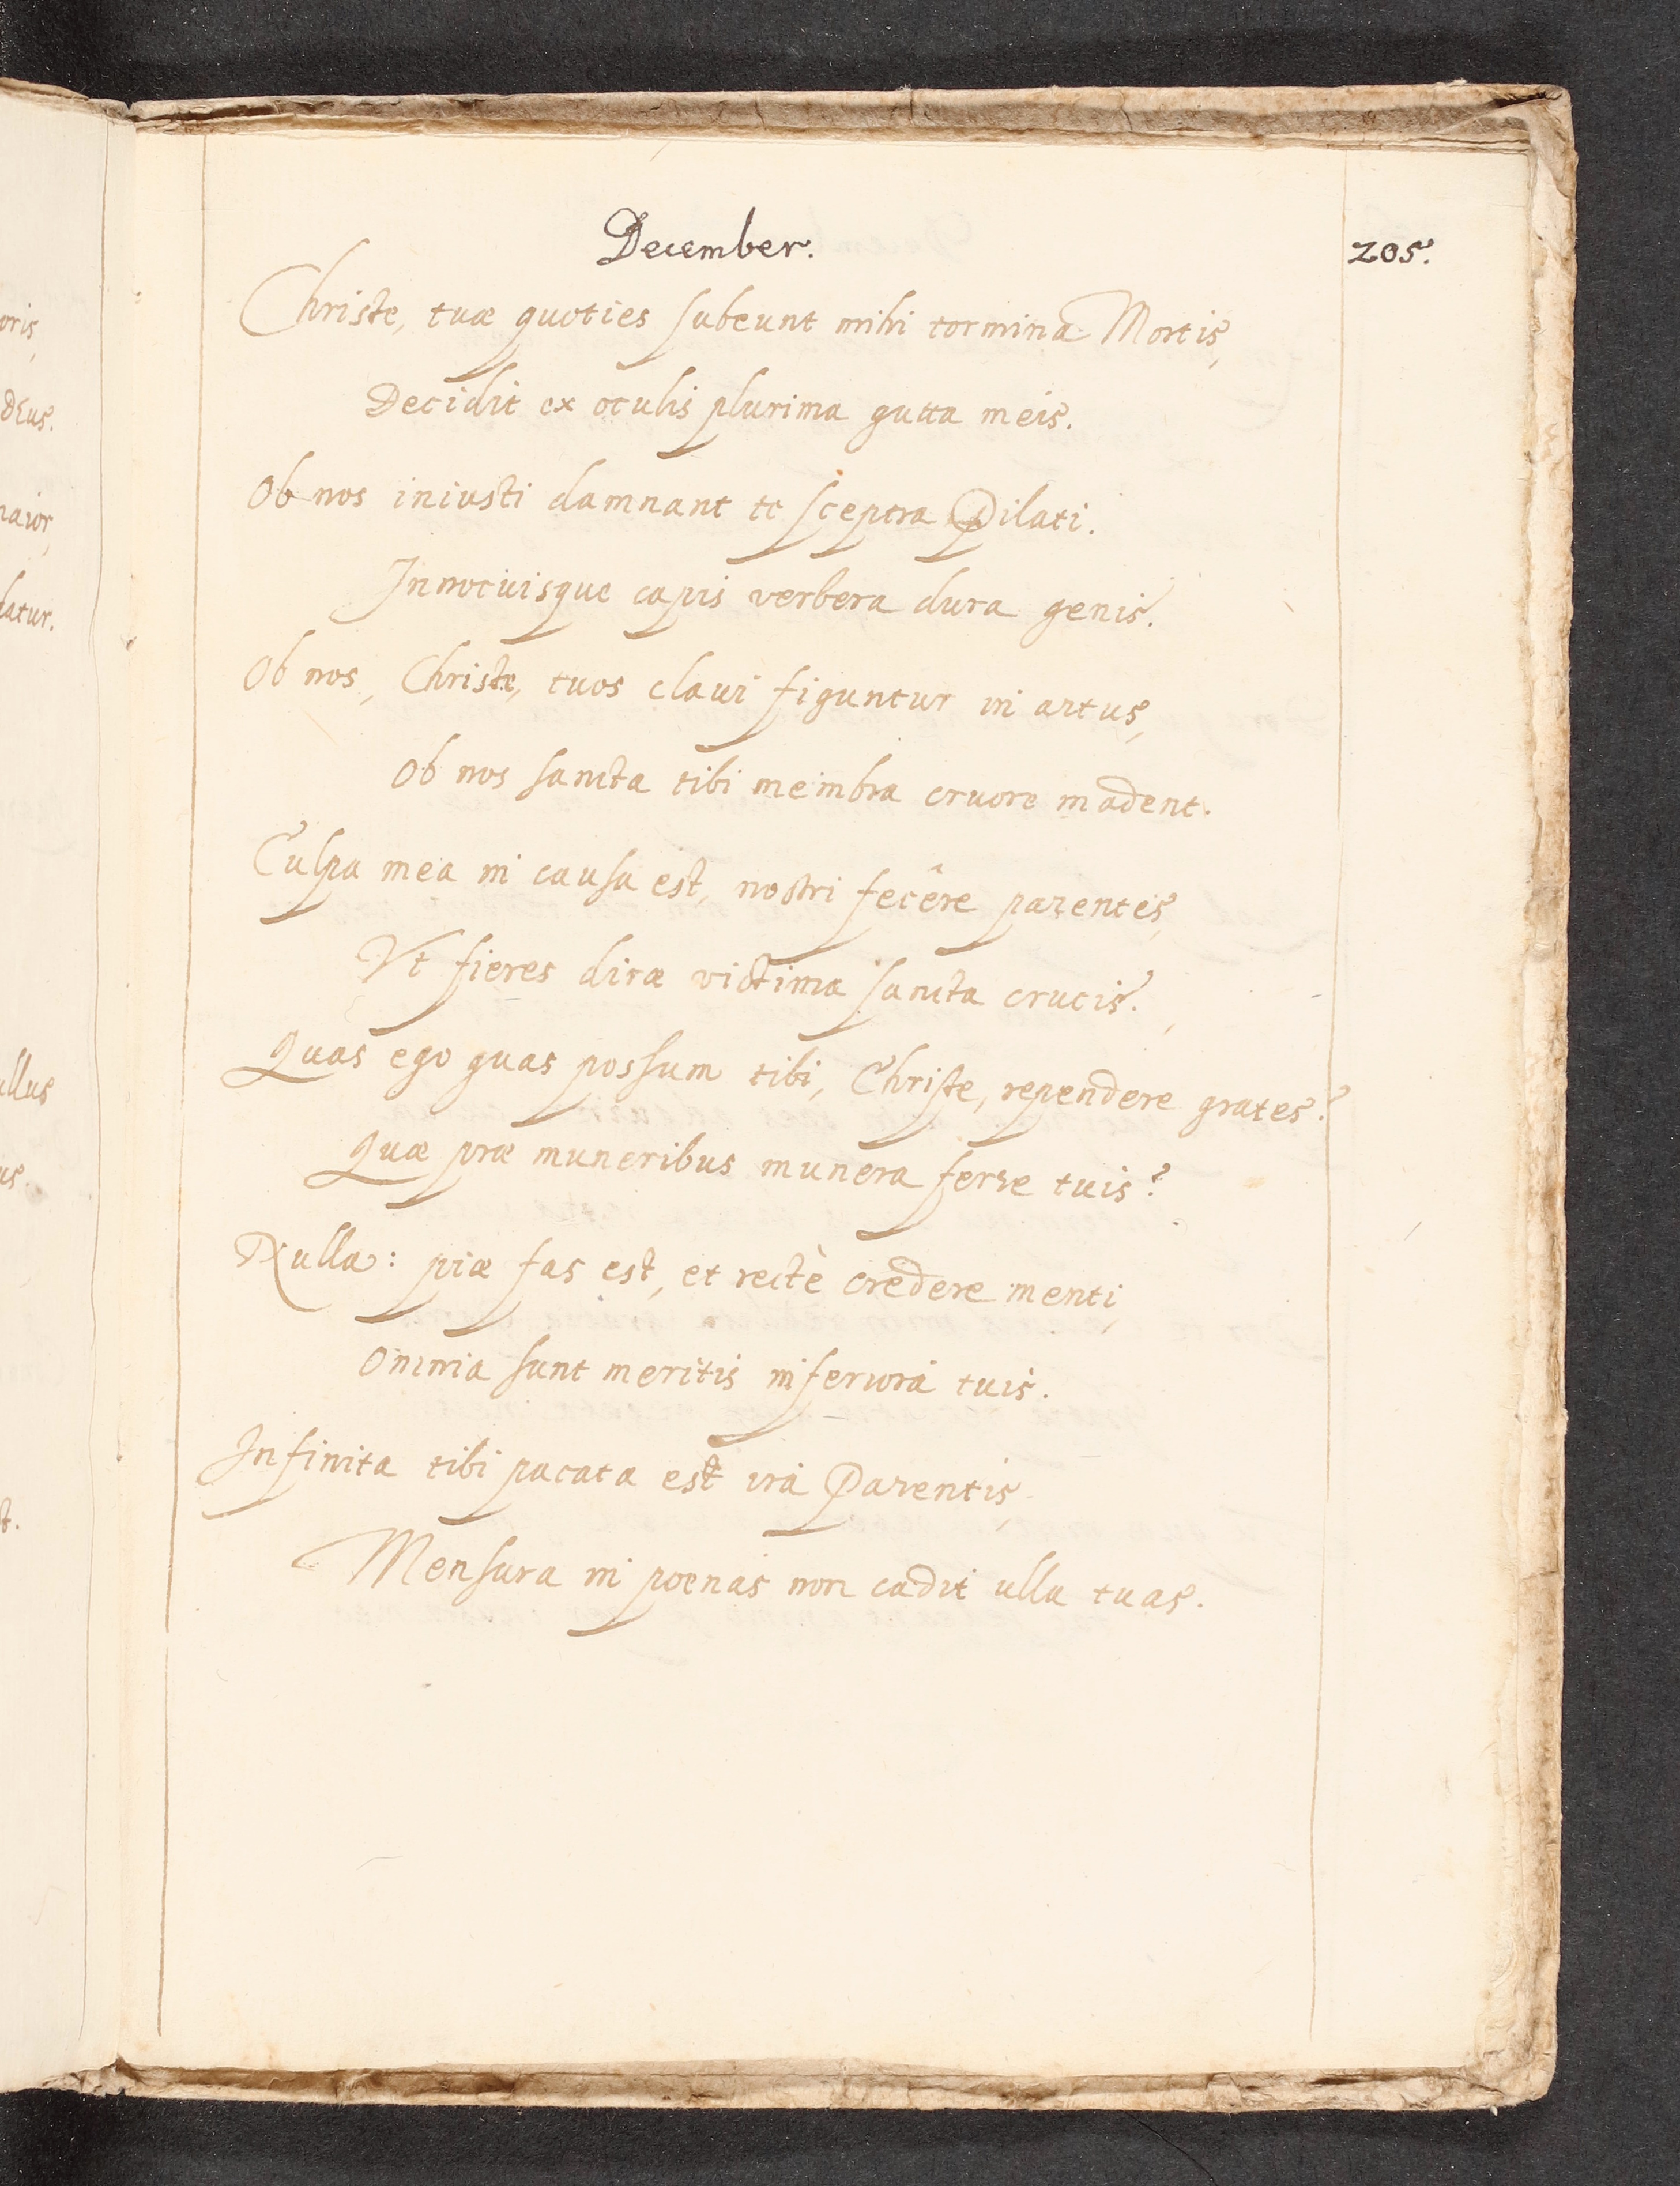 December.
205.
Christe, tuæ quoties subeunt mihi tormina Mortis,
Decidit ex oculis plurima gutta meis.
Ob nos iniusti damnant te sceptra Pilati.
Innocuisque capis verbera dura genis.
Ob nos, Christe, tuos claui figuntur in artus,
Ob nos sancta tibi membra cruore madent.
Culpa mea in causa est, nostri fecêre parentes,
Vt fieres diræ victima sancta crucis.
Quas ego quas possum tibi, Christe, rependere grates?
Quæ præ muneribus munera ferre tuis?
Nulla: piæ fas est, et rectè credere menti,
Omnia sunt meritis inferiora tuis.
Infinita tibi pacata est ira Parentis,
Mensura in poenas non cadit ulla tuas.
oris,
dEus.
maior,
datur.
ullus
us.
t.